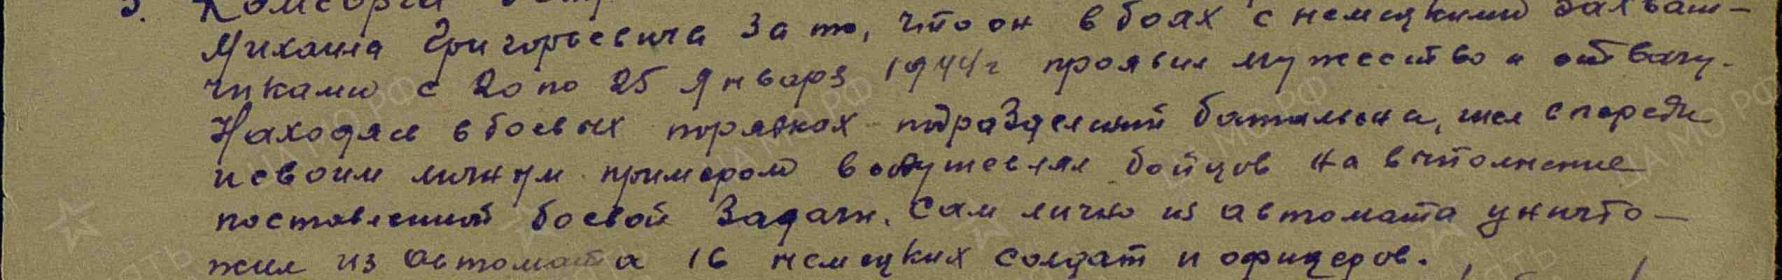 3. Комсорга
Михаила Григорьевича за то, что он в боях с немецкими захват-
чиками с 20 по 25 января 1944 г проявил мужество и отвагу.
Находясь в боевых порядках подразделений батальона, шел впереди
и своим личным примером воодушевлял бойцов на выполнение
поставленной боевой задачи. Сам лично из автомата уничто-
жил из автомата 16 немецких солдат и офицеров.